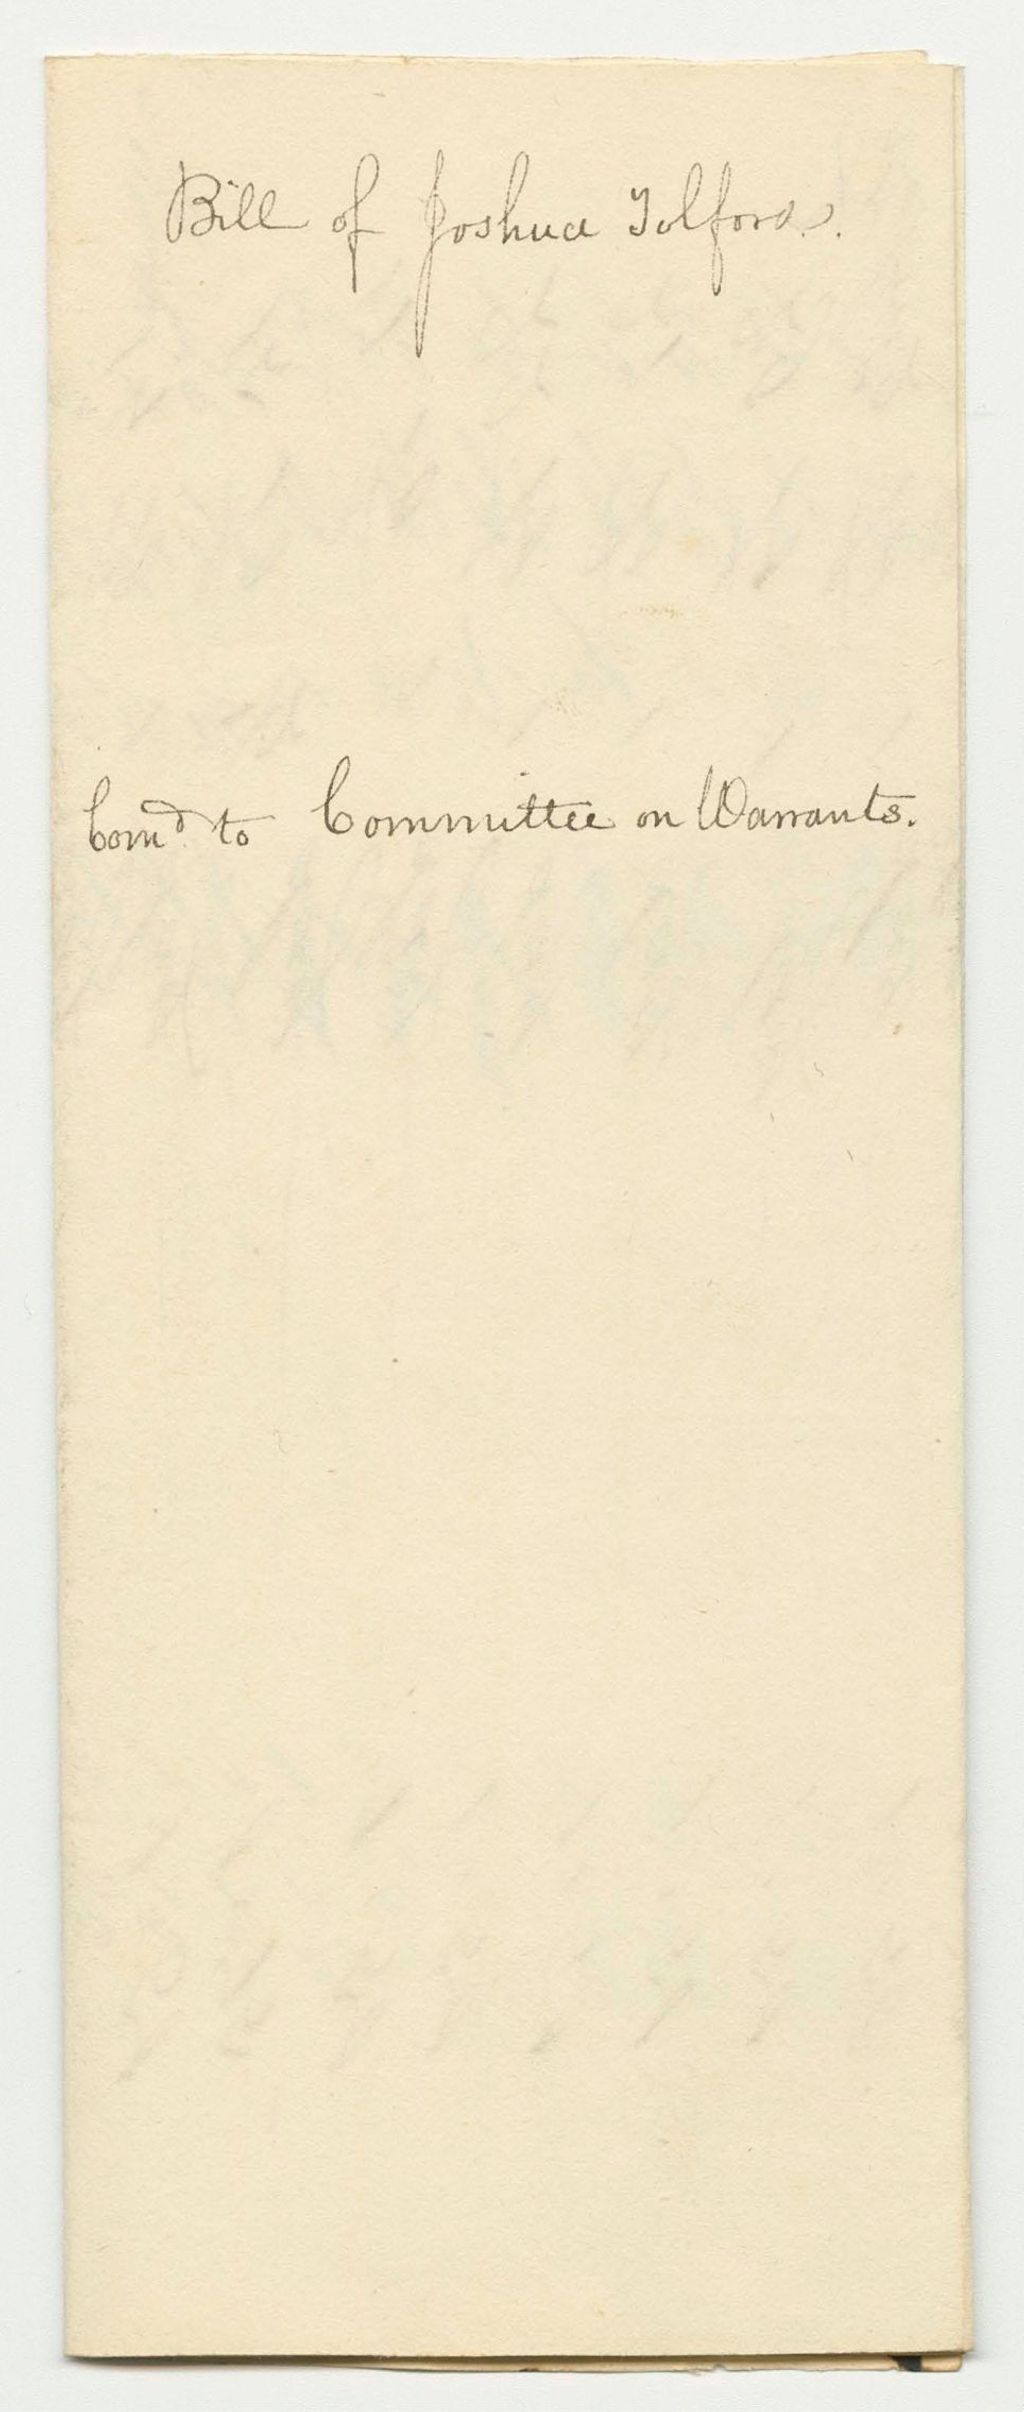 Bill of Joshua Tolford.
Com<sup>d</sup>. to Committee on Warrants.